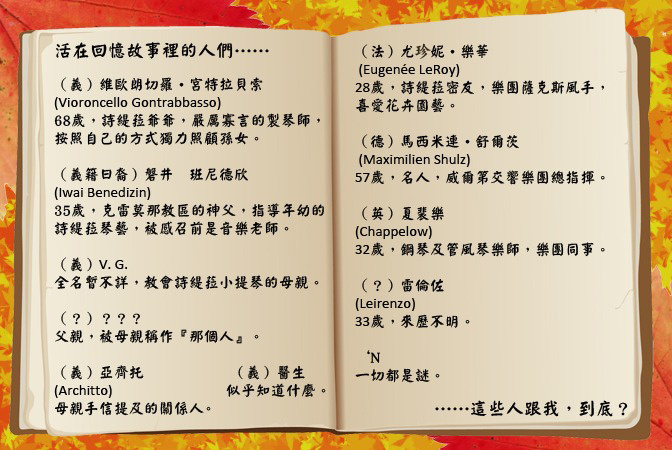 活在回憶故事裡的人們……
（義）維歐朗切羅・宮特拉貝索
(Vioroncello Gontrabbasso)
68歲，詩緹菈爺爺，嚴厲寡言的製琴師，
按照自己的方式獨力照顧孫女。
（義籍日裔）磐井　班尼德欣
(Iwai Benedizin)
35歲，克雷莫那教區的神父，指導年幼的
詩緹菈琴藝，被感召前是音樂老師。
（義）V. G.
全名暫不詳，教會詩緹菈小提琴的母親。
（？）？？？
父親，被母親稱作『那個人』。
（義）亞齊托
(Architto)
母親手信提及的關係人。
（義）醫生
似乎知道什麼。
（法）尤珍妮・樂華
(Eugenée LeRoy)
28歲，詩緹菈密友，樂團薩克斯風手，
喜愛花卉園藝。
（德）馬西米連・舒爾茨
(Maximilien Shulz)
57歲，名人，威爾第交響樂團總指揮。
（英）夏裴樂
(Chappelow)
32歲，鋼琴及管風琴樂師，樂團同事。
（？）雷倫佐
(Leirenzo)
33歲，來歷不明。
‘N
一切都是謎。
……這些人跟我，到底？